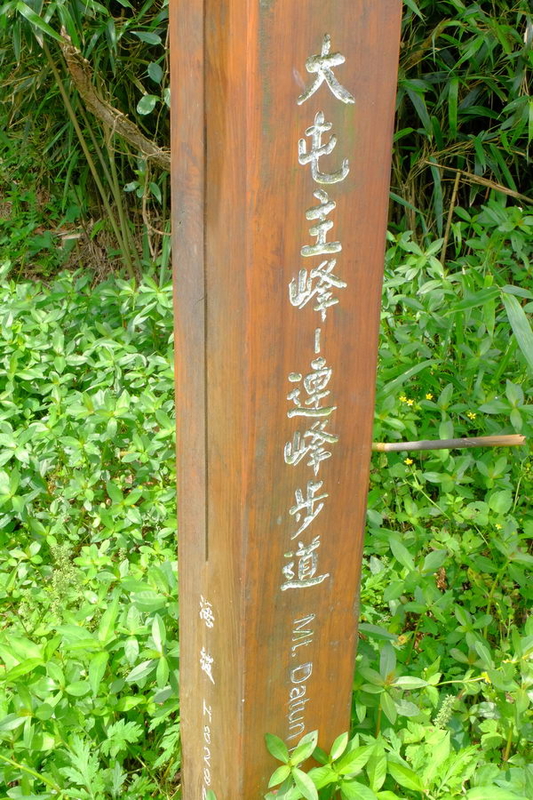 大屯主峰-連峰步道
Mt. Datun
海拔